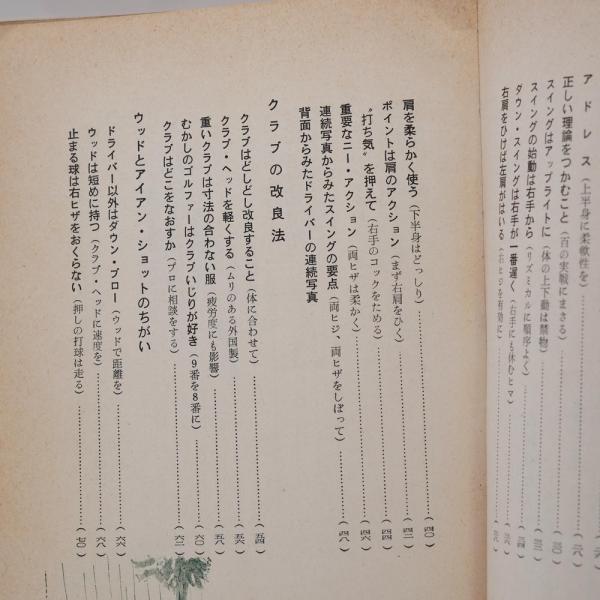 アドレス（上半身に柔軟性を）
正しい理論をつかむこと（百の実戦にまさる）
スイングはアップライトに（体の上下動は禁物）
スイングの始動は右手から（リズミカルに順序よく）
ダウン・スイングは右手が一番遅く（右手にも休むヒマ）
右肩をひけば左肩がはいる（右ヒジを有効に）
肩を柔らかく使う（下半身はどっしり）（四〇）
ポイントは肩のアクション（まず右肩をひく）（四二）
“打ち気”を押えて（右手のコックをためる）（四四）
重要なニー・アクション（両ヒザは柔かく）（四六）
連続写真からみたスイングの要点（両ヒジ、両ヒザをしぼって）（四八）
背面からみたドライバーの連続写真
クラブの改良法
クラブはどしどし改良すること（体に合わせて）（五四）
クラブ・ヘッドを軽くする（ムリのある外国製）（五六）
重いクラブは寸法の合わない服（疲労度にも影響）（五八）
むかしのゴルファーはクラブいじりが好き（9番を8番に）（六〇）
クラブはどこをなおすか（プロに相談をする）（六二）
ウッドとアイアン・ショットのちがい
ドライバー以外はダウン・ブロー（ウッドで距離を）（六六）
ウッドは短めに持つ（クラブ・ヘッドに速度を）（六八）
止まる球は右ヒザをおくらない（押しの打球は走る）（七〇）